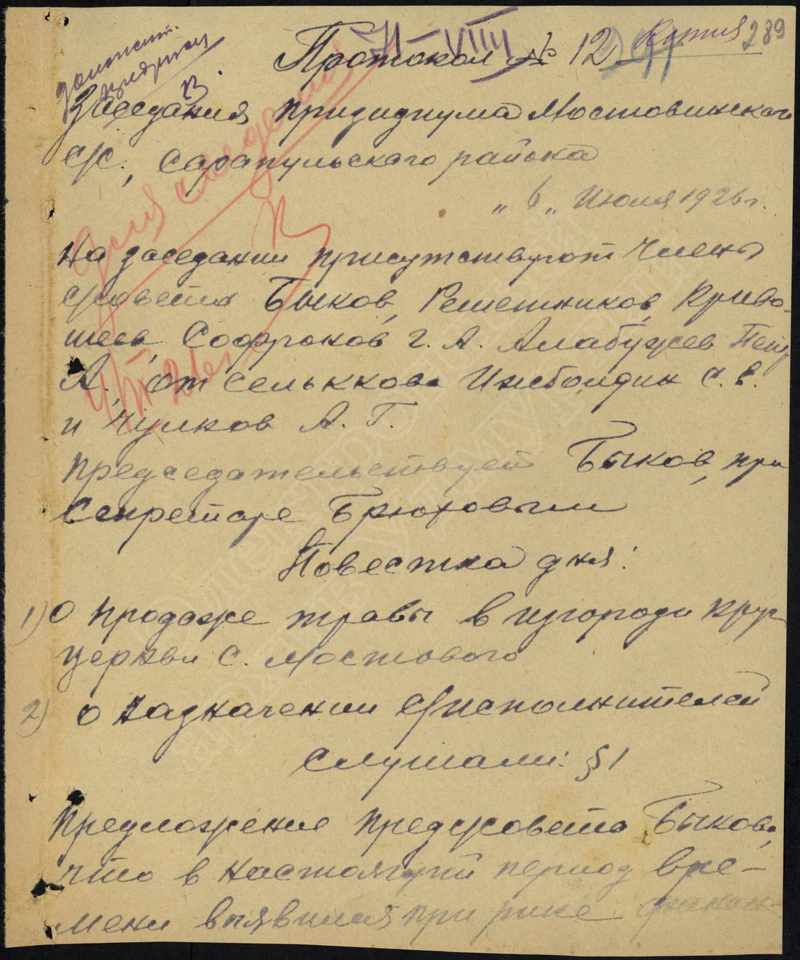 Копия 289
Протокол № 12
Заседания призидиума Мостовинского
с/с., Сарапульского района
„6„ Июля 1926 г.
На заседании присутствуют члены
с/совета Быков, Решетников, Криво-
шеев, Софронов Г. А. Алабужев Петр
А, от селькков Инбалдин С. В.
и Чулков А. Г.
Председательствует Быков, при
секретаре Брюховым
Повестка дня:
1) О продаже травы в изгороди круг
церкви с. Мостового
2) О назначении с/исполнителей
Слушали: §1
Предложение предсовета Быкова,
что в настоящий период вре-
мени выявился при рике